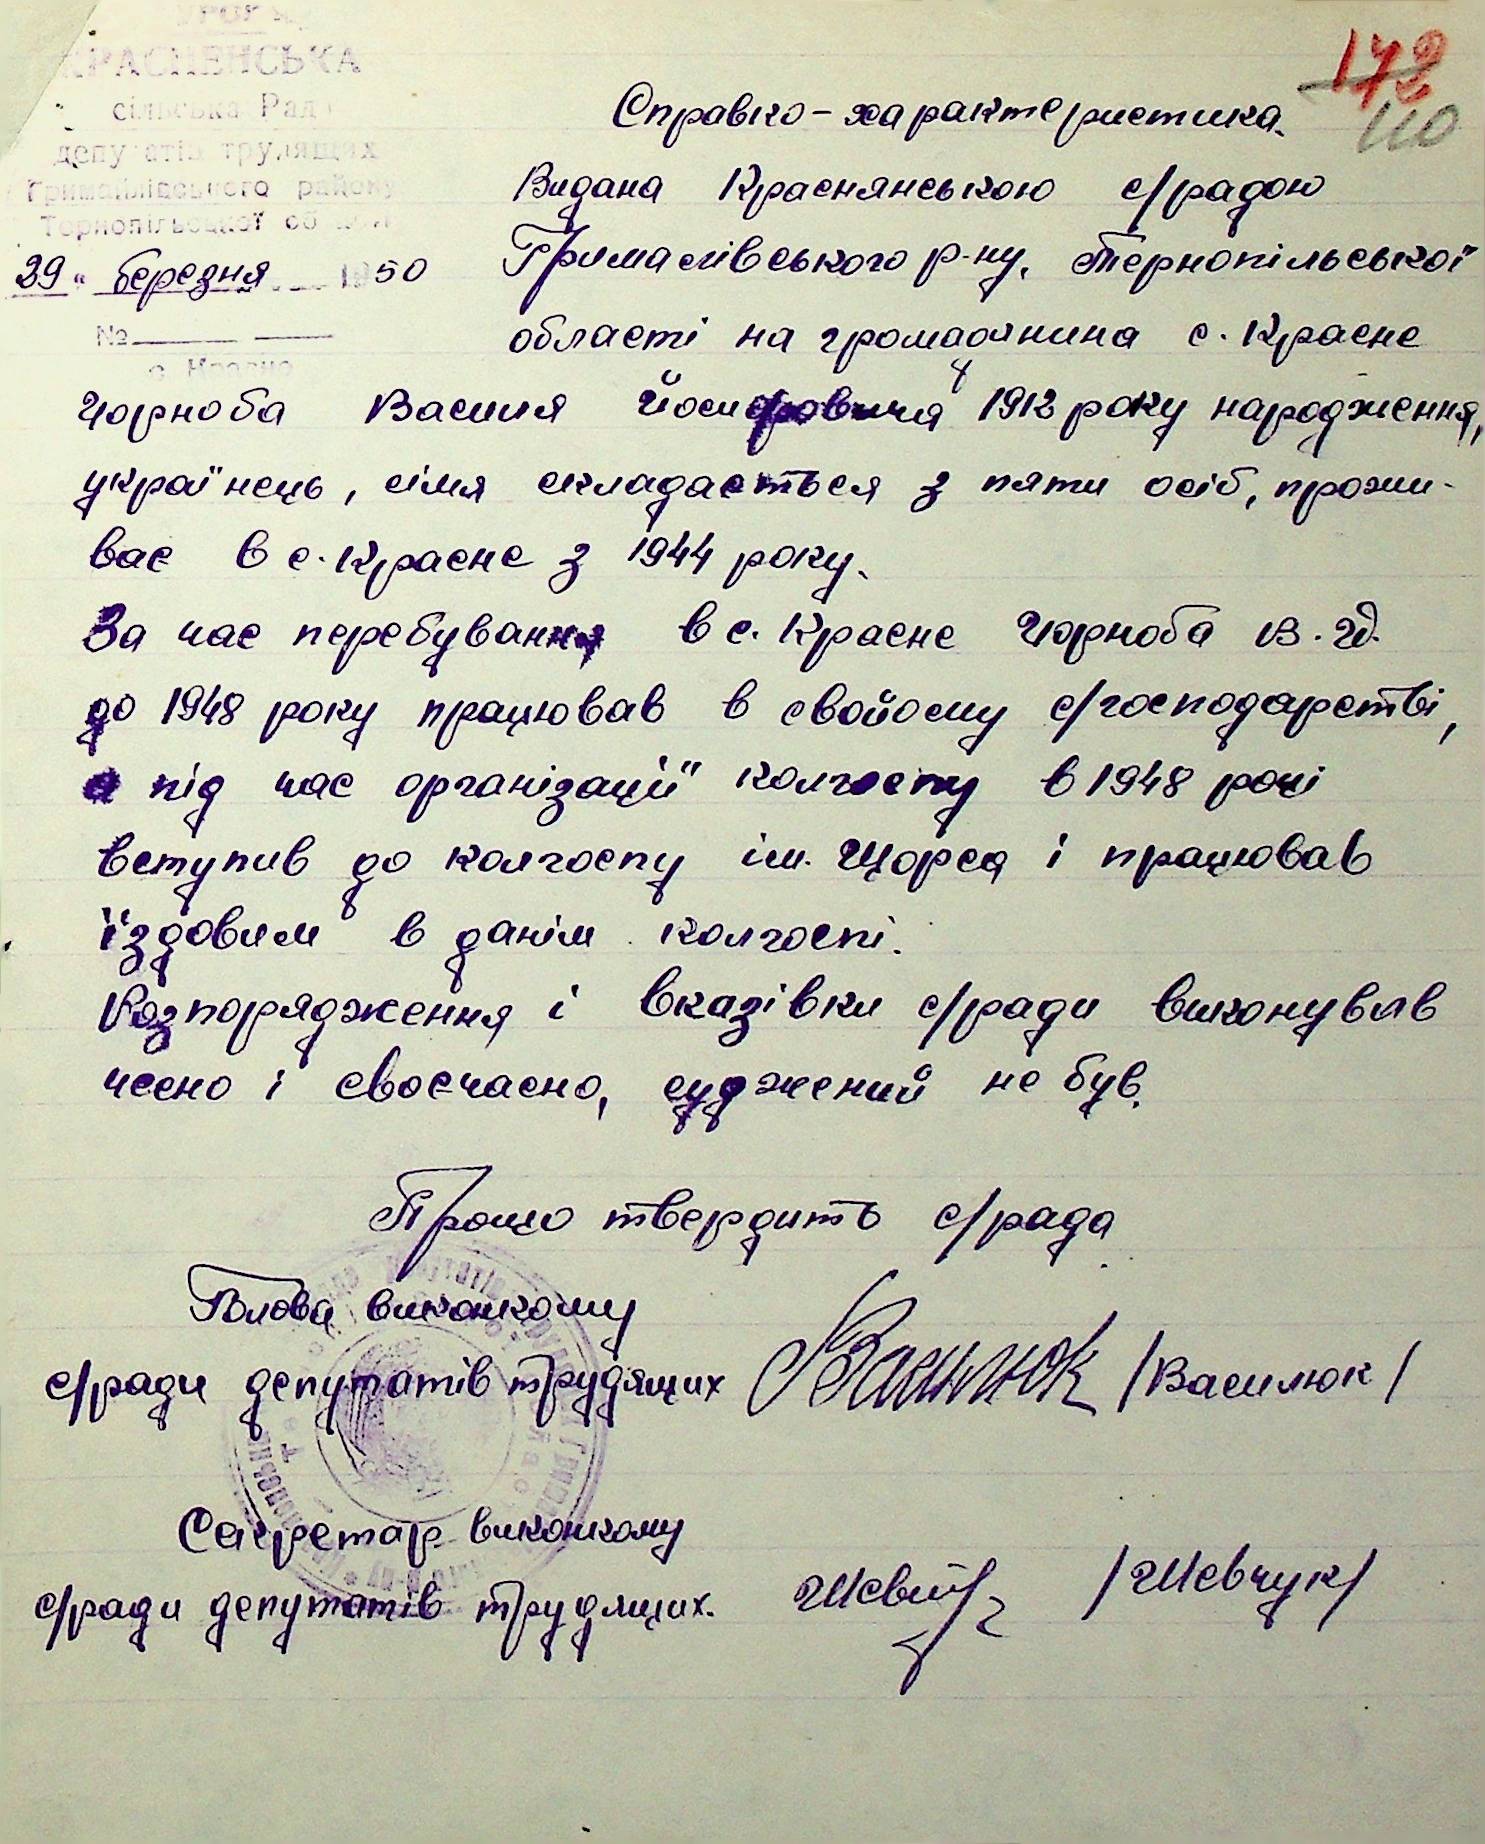 УРСР
КРАСНЕНСЬКА
сільська Рада
депутатів трудящих
Гримайлівського району
Тернопільської області
29 " березня 1950
№
с. Красне
172
110
Справко - характеристика.
Видана Краснянською с/радою
Гримайлівського р-ну, Тернопільської
області на громадянина с. Красне
Чорноба Василя Йосифовича 1912 року народження,
українець, сімя складається з пяти осіб, прожи-
ває в с. Красне з 1944 року.
За час перебування в с. Красне Чорноба В. Й.
до 1948 року працював в свойому с/господарстві,
а під час організації колгоспу в 1948 році
вступив до колгоспу ім. Щорса і працював
їздовим в данім колгоспі.
Розпорядження і вказівки с/ради виконував
чесно і своєчасно, суджений не був.
Прощо твердить с/рада
Голова виконкому
с/ради депутатів трудящих Василюк /Василюк/
Секретар виконкому
с/ради депутатів трудящих. /Шевчук/